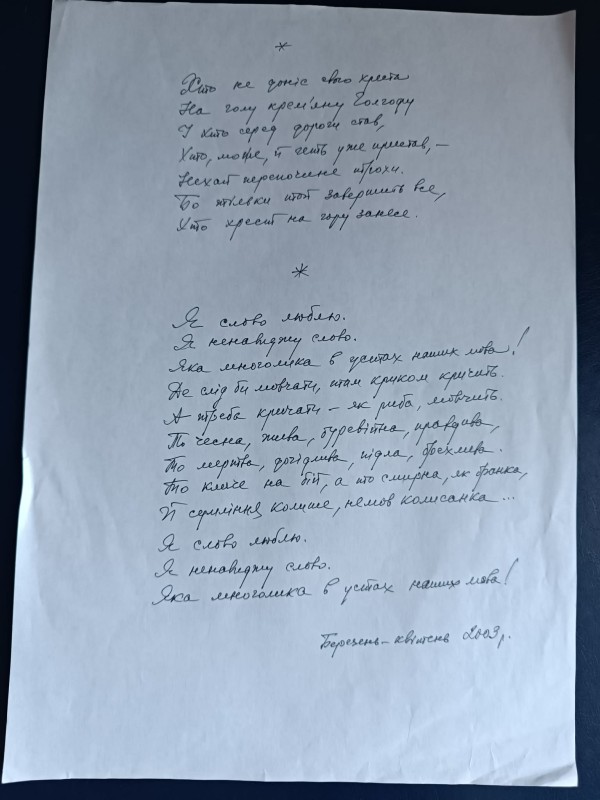 *
Хто не доніс свого хреста
На голу крем'яну Голгофу
І хто серед дороги став,
Хто, може, й геть уже пристав, –
Нехай перепочине трохи.
Бо тільки той завершить все,
Хто хрест на гору занесе.
*
Я слово люблю.
Я ненавиджу слово.
Яка многолика в устах наших мова!
Де слід би мовчати, там криком кричить.
А треба кричати – як риба, мовчить.
То чесна, жива, буревійна, правдива,
То мертва, догідлива, підла, брехлива.
То кличе на бій, а то смирна, як бранка,
Й сумління колише, немов колисанка...
Я слово люблю.
Я ненавиджу слово.
Яка многолика в устах наших мова!
Березень–квітень 2009 р.